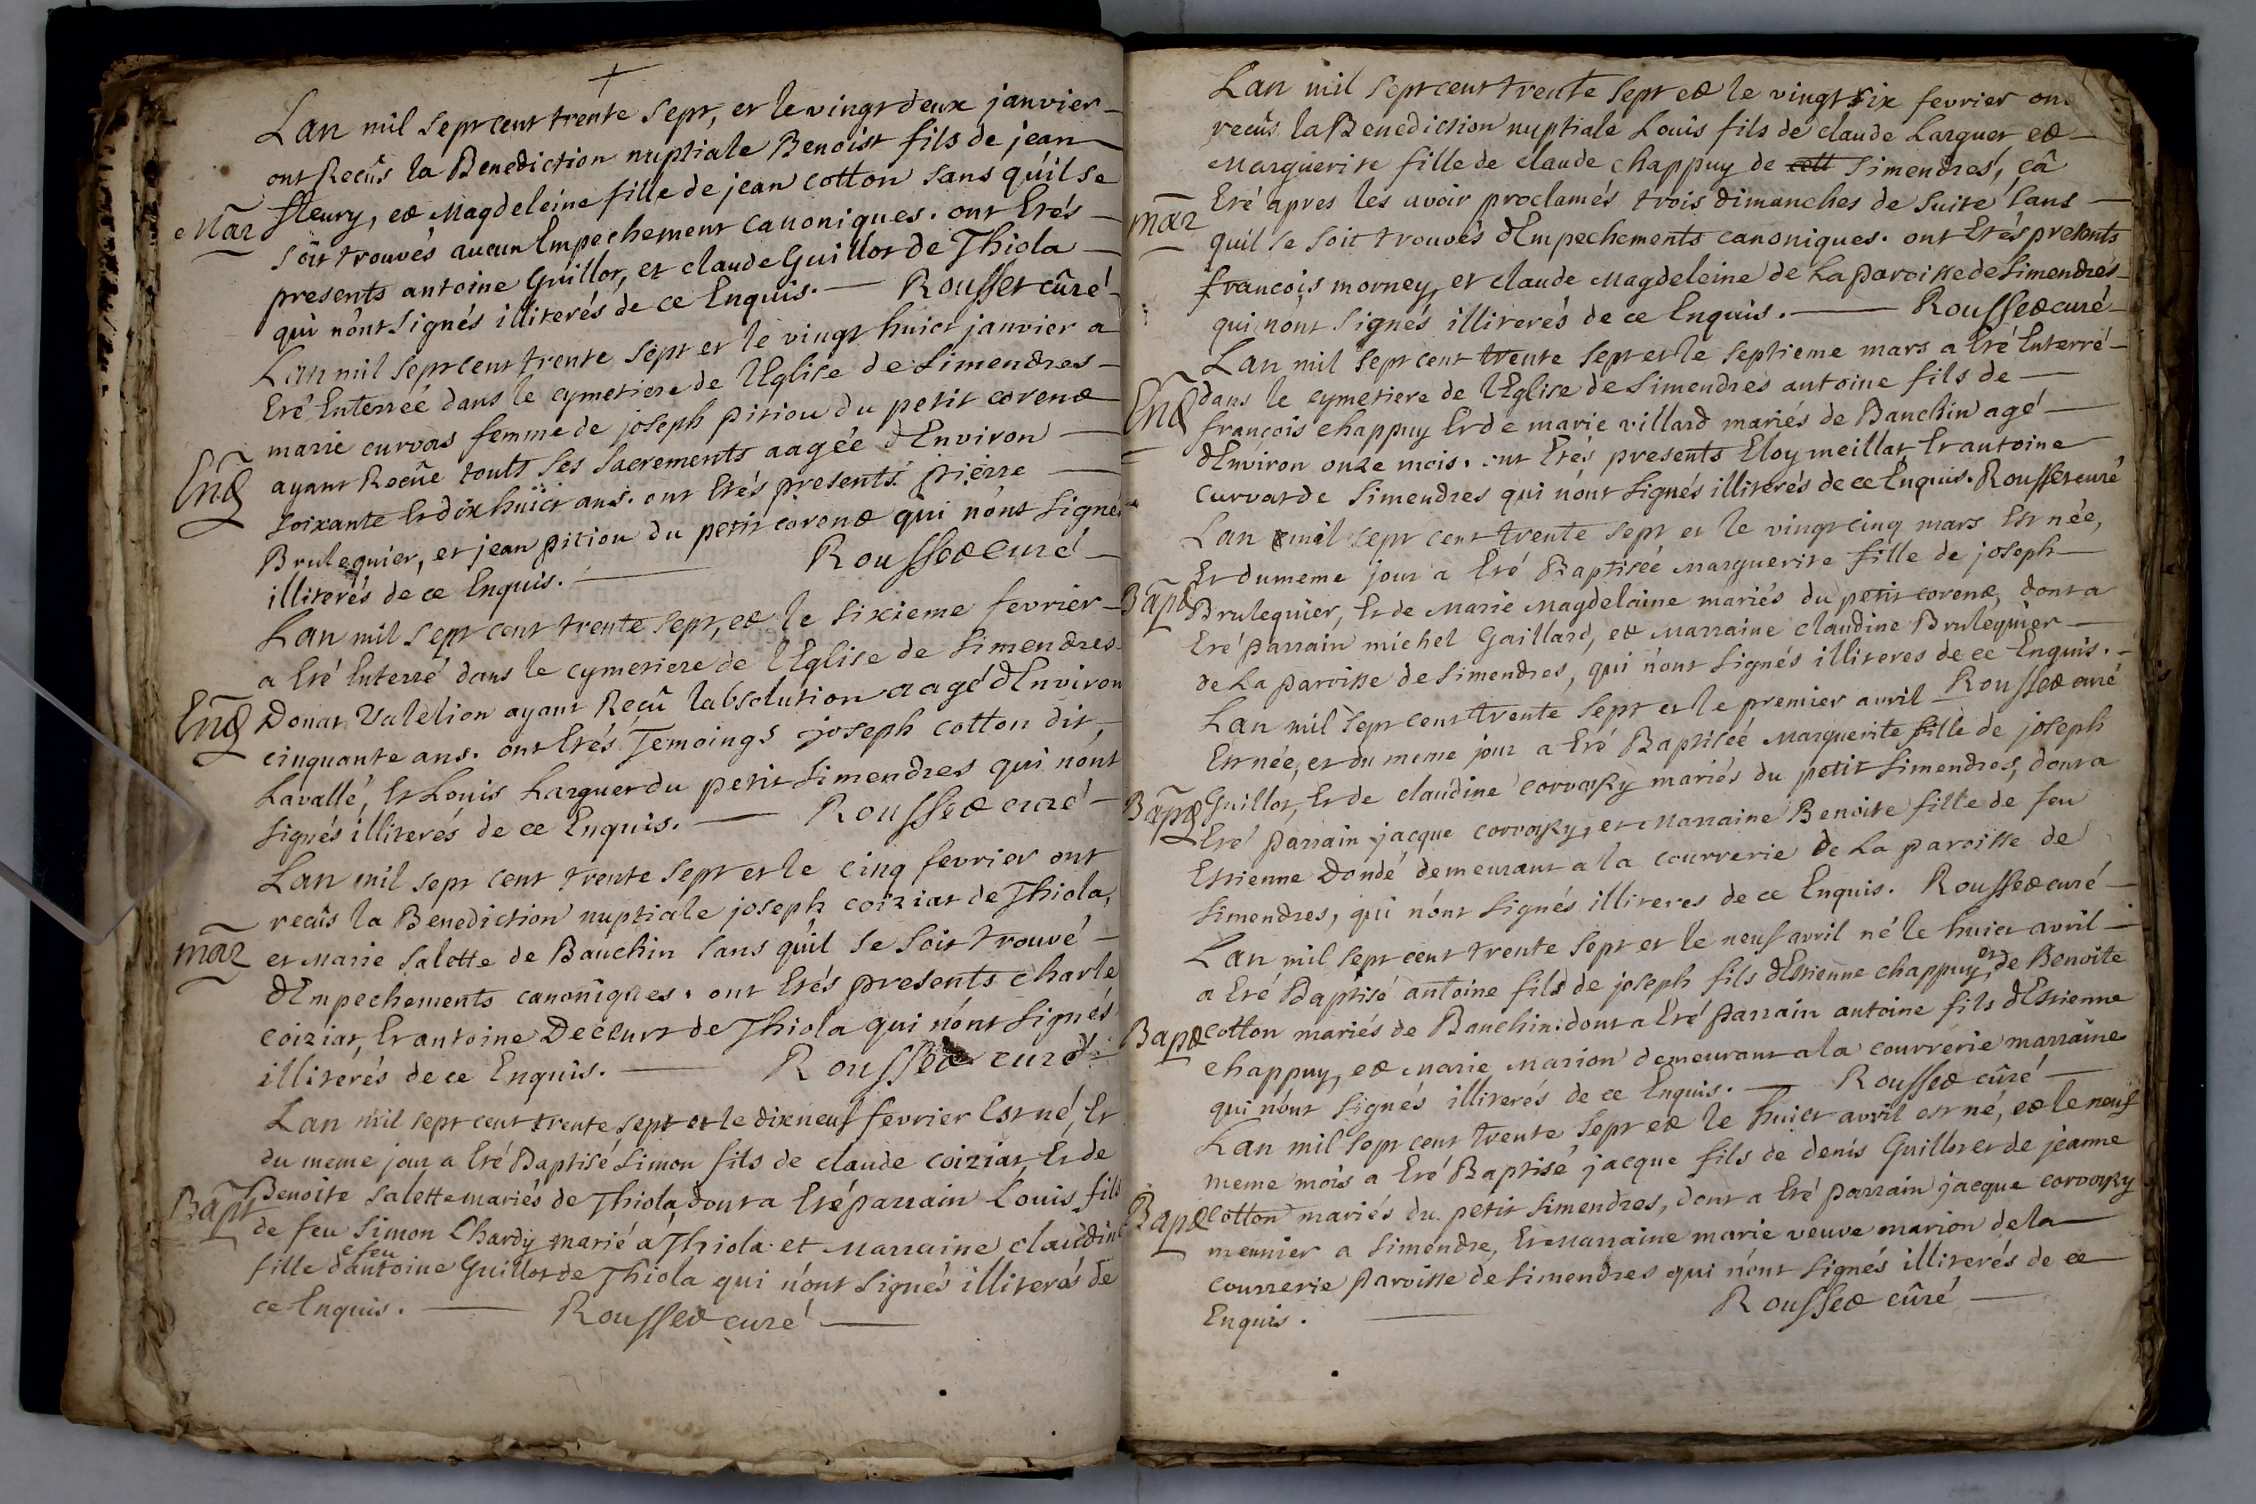 Lan mil sept cent trente sept, et le vingt deux janvier
ont Recûs la Benediction nuptiale Benoist fils de jean
Mar fleury, et Magdeleine fille de jean cotton sans qu'il se
soit trouvés aucun Empechement canoniques. ont Etés
presents antoine Guillot, et claude Guillot de Thiola
qui n'ont signés illiterés de ce Enquis. Rousset cûré
Lan mil sept cent trente sept et le vingt huict janvier a
Eté Enterrée dans le cymetiere de l'Eglise de Simendres
marie curvas femme de joseph pitiou du petit corent
Ent ayant Recûe touts ses sacrements aagée d'Environ
soixante Et dix huict ans. ont Etés presents pierre
Brulequier, et jean pitiou du petit corent qui n'ont signés
illiterés de ce Enquis. Rousset curé
Lan mil sept cent trente sept, et le sixieme fevrier
a Eté Enterré dans le cymetiere de l'Eglise de Simendres
Ent Donat Valelion ayant Reçû labsolution aagé d'Environ
cinquante ans. ont Etés Temoings joseph cotton dit
Lavallé, Et Louis Larguer du petit Simendres qui n'ont
signés illiterés de ce Enquis. Rousset curé
Lan mil sept cent trente sept et le cinq fevrier ont
recûs la Benediction nuptiale joseph coiziat de Thiola,
mar et Marie Salette de Bauchin sans qu'il se soit trouvé
d'Empechements canoniques. ont Etés presents charle
coiziat, Et antoine Decluzt de Thiola qui n'ont signés
illiterés de ce Enquis. Rousset curé
Lan mil sept cent trente sept et le dixneuf fevrier Est né, Et
du meme jour a Eté Baptisé Simon fils de claude coiziat Et de
Bapt Benoite Salette mariés de Thiola, dont a Eté parrain Louis fils
de feu Simon Chardy marié a Thiola et Marraine claudine
fille de feu antoine Guillot de Thiola qui n'ont signés illiterés de
ce Enquis. Rousset curé
Lan mil sept cent trente sept et le vingt six fevrier ont
recûs la Benediction nuptiale Louis fils de claude Larguer et
Marguerite fille de claude chappuy de cett Simendres, çâ
mar Eté apres les avoir proclamés trois dimanches de suite sans
quil se soit trouvés d'Empechements canoniques. ont Etés presents
françois morney, et claude Magdeleine de La paroisse de Simendres
qui n'ont signés illiterés de ce Enquis. Rousset curé
Lan mil sept cent trente sept et le septieme mars a Eté Enterré
Ent dans le cymetiere de l'Eglise de Simendres antoine fils de
françois chappuy Et de marie villard mariés de Bauchin agé
d'Environ onze mois. ont Etés presents Eloy meillat Et antoine
Curvat de Simendres qui n'ont signés illiterés de ce Enquis. Rousset curé
Lan mil sept cent trente sept et le vingt cinq mars Est née,
Et du meme jour a Eté Baptisée Marguerite fille de joseph
Bapt Brulequier, Et de Marie Magdeleine mariés du petit corent, dont a
Eté parrain michel Gaillard, et Marraine claudine Brulequier
de La paroisse de Simendres, qui n'ont signés illiteres de ce Enquis.
Lan mil sept cent trente sept et le premier avril Rousset curé
Est née, et du meme jour a Eté Baptisée Marguerite fille de joseph
Bapt Guillot, Et de claudine corvasky mariés du petit Simendres, dont a
Eté parrain jacque corvasky, et Marraine Benoite fille de feu
Estienne Dondé demeurant a la courrerie de La paroisse de
Simendres, qui n'ont signés illiteres de ce Enquis. Rousset curé
Lan mil sept cent trente sept et le neuf avril né le huict avril
a Eté Baptisé antoine fils de joseph fils d'Estienne chappuy et de Benoite
Bapt cotton mariés de Bauchin: dont a Eté parrain antoine fils d'Estienne
chappuy, et Marie Marion demeurant a la courrerie marraine
qui n'ont signés illiterés de ce Enquis. Rousset cûré
Lan mil sept cent trente sept et le huict avril est né, et le neuf
meme mois a Eté Baptisé jacque fils de denis Guillot et de jeanne
Bapt cotton mariés du petit Simendres, dont a Eté parrain jacque corvasky
meunier a Simendre, Et Marraine marie veuve marion de la
courrerie paroisse de Simendres qui n'ont signés illiterés de ce
Enquis. Rousset cûré